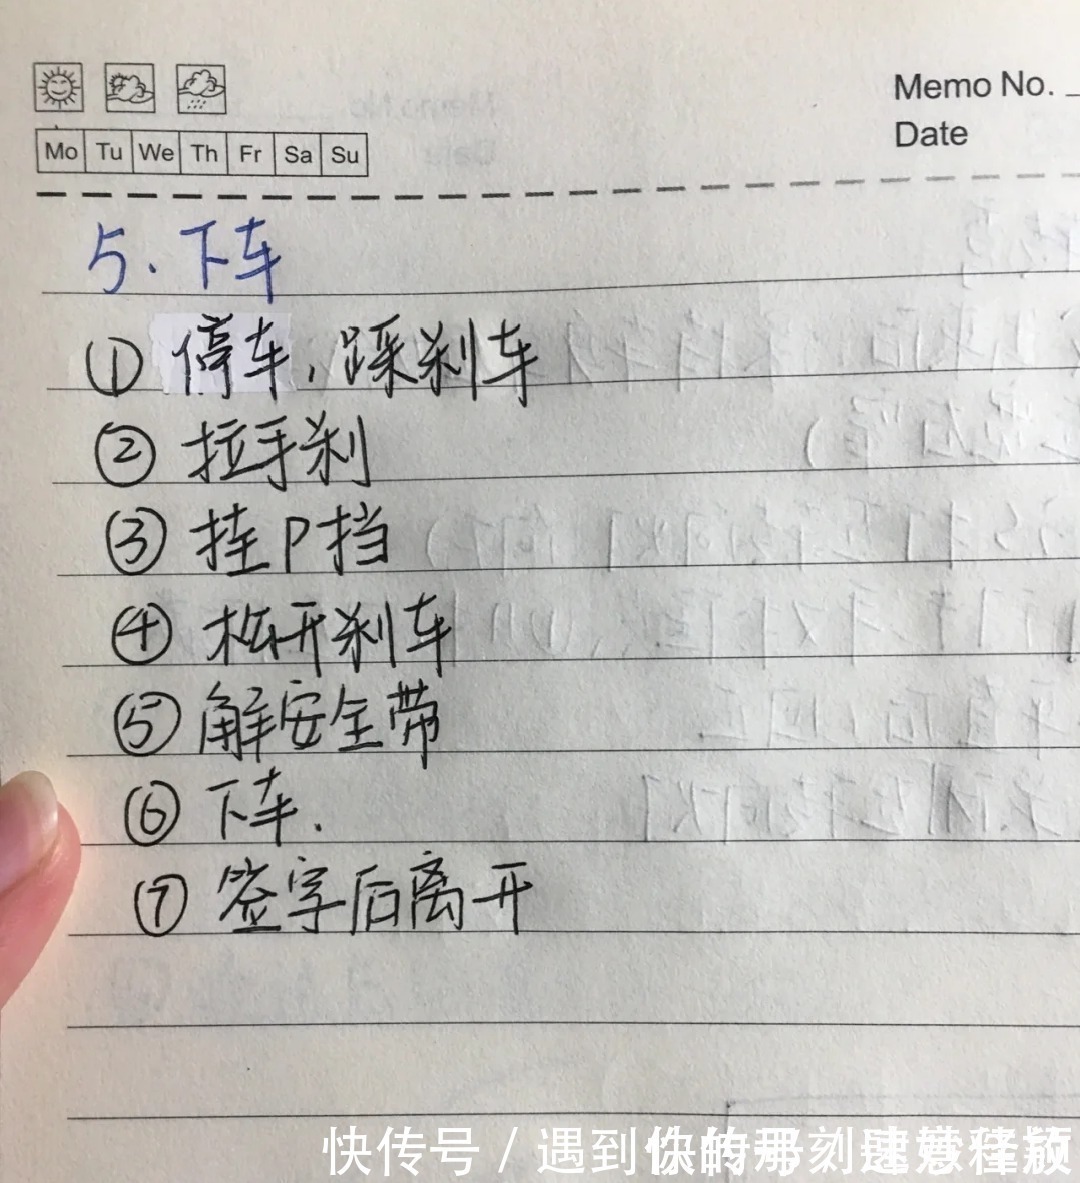 Memo No.
Date
Mo Tu We Th Fr Sa Su
5. 下车
① 停车，踩刹车
② 拉手刹
③ 挂P挡
④ 松开刹车
⑤ 解安全带
⑥ 下车.
⑦ 签字后离开
快传号 / 遇到